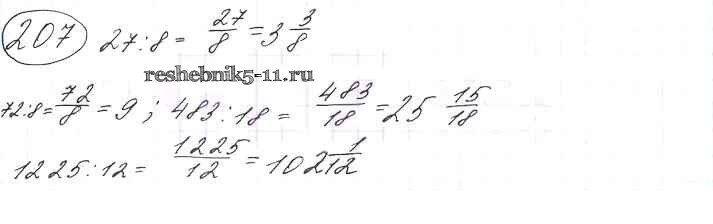 207 27:8 = 27/8 = 3 3/8
reshebnik5-11.ru
72:8 = 72/8 = 9 ; 483:18 = 483/18 = 25 15/18
1225:12 = 1225/12 = 102 1/12